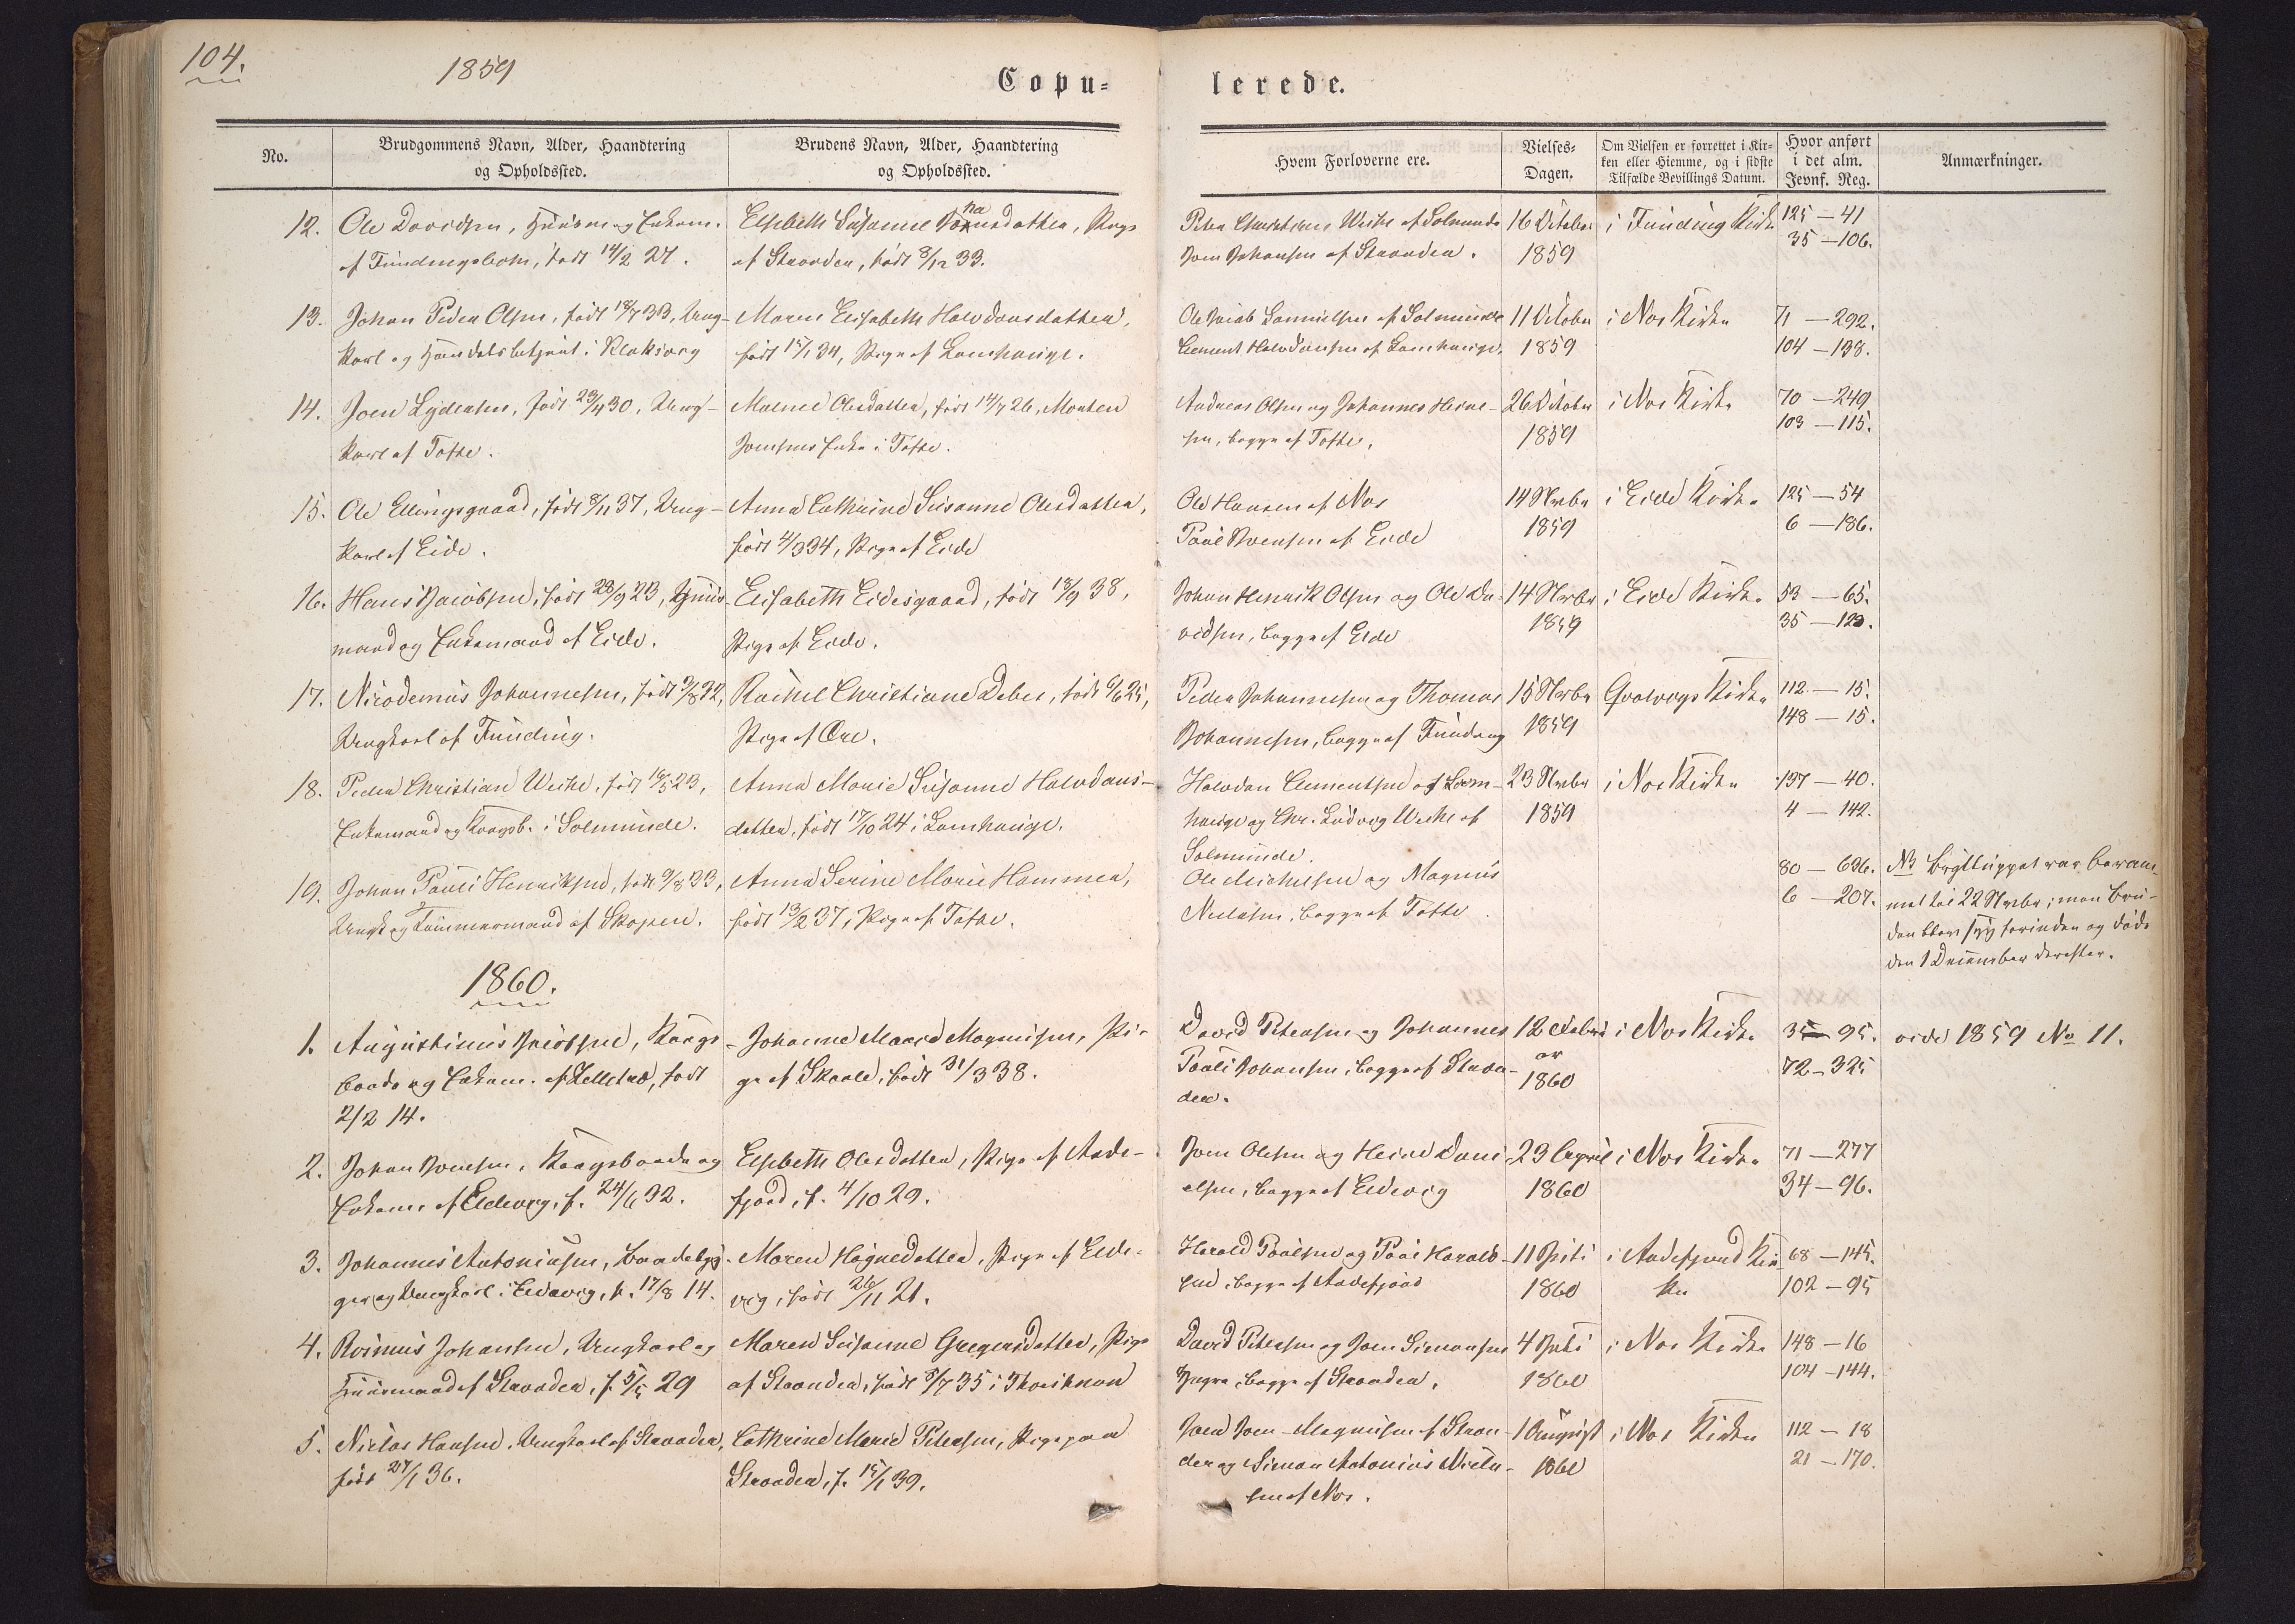 104.
1859
Copu-
lerede.
No.
Brudgommens Navn, Alder, Haandtering
og Opholdssted.
Brudens Navn, Alder, Haandtering
og Opholdssted.
Hvem Forloverne ere.
Vielses-
Dagen.
Om Vielsen er forrettet i Kir-
ken eller Hiemme, og i sidste
Tilfælde Bevillings Datum.
Hvor anført
i det alm.
Jevnf. Reg.
Anmærkninger.
12. Ole Davidsen, Huusm. og Enkem.
af Fundingsbotn, født 14/2 27.
Elsebeth Susanne, Pige
af Strænder, født 8/12 33.
Peter Christian Weihe af Solmunde
Joen Johansen af Strænder.
16 October
1859
i Funding Kirke
125 — 41
35 — 106.
13. Johan Peder Olsen, født 18/7 33, Ung-
karl og Handelsbetjent i Klaksvig
Maren Elisabeth Halvdansdatter,
født 15/1 34, Pige af Lamhauge.
Ole Jacob Samuelsen af Solmunde
Clement Halvdansen af Lamhauge.
11 October
1859
i Nes Kirke
71 — 292.
104 — 138.
14. Joen Lydersen, født 23/4 30, Ung-
karl af Tofte.
Malene Olesdatter, født 14/7 26, Morten
Joensens Enke i Tofte.
Andreas Olsen og Johannes Heine-
sen, begge af Tofte.
26 October
1859
i Nes Kirke
70 — 249
103 — 115.
15. Ole Ellingsgaard, født 8/11 37, Ung-
karl af Eide.
Anna Cathrine Susanne Olesdatter,
født 4/3 34, Pige af Eide
Ole Hansen af Nes
Poul Joensen af Eide
14 Novbr
1859
i Eide Kirke
125 — 54
6 — 186.
16. Hans Jacobsen, født 28/9 23, Huus-
mand og Enkemand af Eide.
Elisabeth Eidesgaard, født 18/9 38,
Pige af Eide.
Johan Henrik Olsen og Ole Da-
vidsen, begge af Eide
14 Novbr
1859
i Eide Kirke
53 — 65.
35 — 120.
17. Nicodemus Johannesen, født 3/8 32,
Ungkarl af Funding.
Rachel Christiane Debes, født 6/6 25,
Pige af Øre.
Peder Johannesen og Thomas
Johannesen, begge af Funding
15 Novbr
1859
Qvalvigs Kirke
112 — 15.
148 — 15.
18. Peder Christian Weihe, født 16/5 23,
Enkemand og Kongsb. i Solmunde.
Anna Marie Susanne Halvdans-
datter, født 17/10 24 i Lamhauge.
Halvdan Clementsen af Lam-
hauge og Chr. Ludvig Weihe af
Solmunde.
23 Novbr
1859
i Nes Kirke
137 — 40.
4 — 142.
19. Johan Pauli Henriksen, født 9/8 33,
Ungk. og Tømmermand af Skopen.
Anna Serine Marie Hammer,
født 13/2 37, Pige af Tofte.
Ole Michelsen og Magnus
Nielsen, begge af Tofte
80 — 636.
6 — 207.
NB Brylluppet var beram-
met til 22 Novbr; men Bru-
den blev syg forinden og døde
den 1 December derefter.
1860.
1. Augustinus Jacobsen, Kongs-
bonde og Enkem. af Selletræ, født
2/2 14.
Johanne Marie Magnusen, Pi-
ge af Skaale, født 31/3 38.
David Petersen og Johannes
Pauli Johansen, begge af Stræn-
der.
12
1860
i Nes Kirke
35 — 95.
72 — 325
vide 1859 No 11.
2. Johan Joensen, Kongsbonde og
Enkem. af Eldevig, f. 24/6 32.
Elsebeth Olesdatter, Pige af Ande-
fjord, f. 4/10 29.
Joen Olesen og Heine Dani-
elsen, begge af Eldevig
29 April
1860
i Nes Kirke
71 — 277
34 — 96.
3. Johannes Antoniusen, Baadebyg-
ger og Ungkarl i Eldevig, f. 17/8 14.
Maren Høgnedatter, Pige af Elde-
vig, født 26/11 21.
Harald Poulsen og Poul Harald-
sen, begge af Andefjord
11 Juli
1860
i Andefjord Kir-
ke
68 — 145.
102 — 95
4. Rasmus Johansen, Ungkarl og
Huusmand af Strænder, f. 5/5 29
Maren Susanne Gregersdatter, Pige
af Strænder, født 8/7 35 i Thorshavn
David Petersen og Joen Simonsen
Yngre, begge af Strænder.
4 Juli
1860
i Nes Kirke
148 — 16
104 — 144.
5. Niclas Hansen, Ungkarl af Strænder,
født 27/1 36.
Cathrine Marie Petersen, Pige paa
Strænder, f. 15/1 39.
Joen Joen-Magnusen af Stræn-
der og Simon Antonius Niels-
sen af Nes.
1 August
1860
i Nes Kirke
112 — 18
21 — 170.